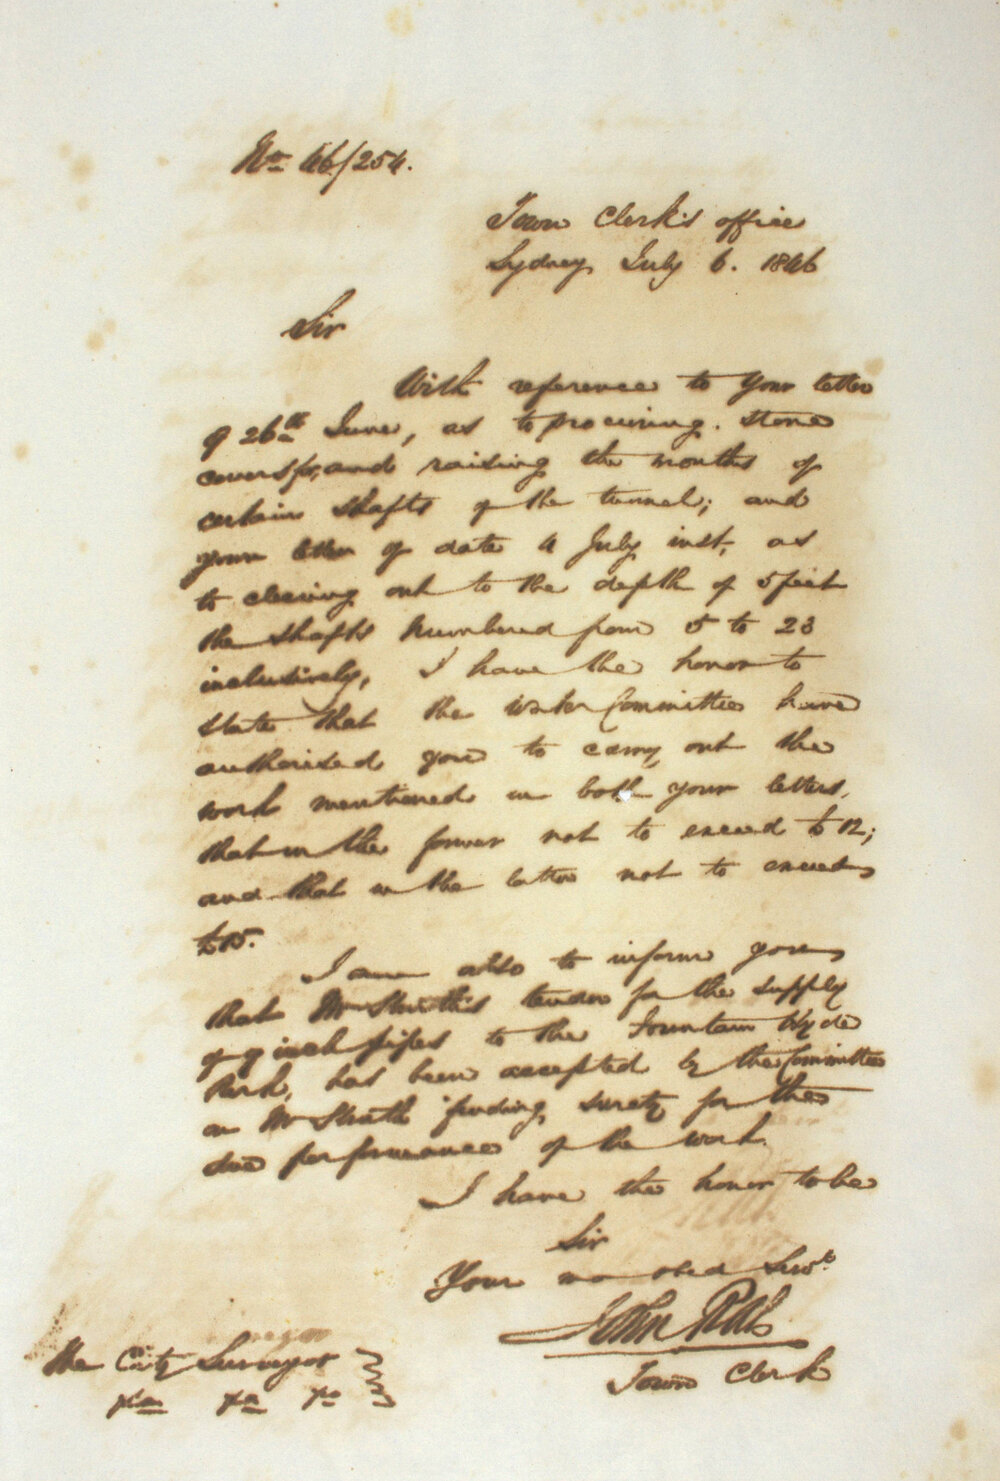 No. 46/254.
Town Clerk's office
Sydney July 6. 1846
Sir
With reference to Your letter
of 26th June, as to procuring stone
covers for, and raising the mouths of
certain shafts of the tunnel; and
your letter of date 4 July inst, as
to clearing out to the depth of 5 feet
the shafts numbered from 5 to 23
inclusively, I have the honor to
state that the Water Committee have
authorised you to carry out the
work mentioned in both your letters,
that in the former not to exceed £12;
and that in the latter not to exceed
£15.
I am also to inform you
that Mr tender for the supply
of 9 inch pipes to the Fountain Hyde
Park, has been accepted by the Committee
on Mr finding surety for the
due performance of the work.
I have the honor to be
Sir
Your mo obed Servt
John Rae
Town Clerk
The City Surveyor